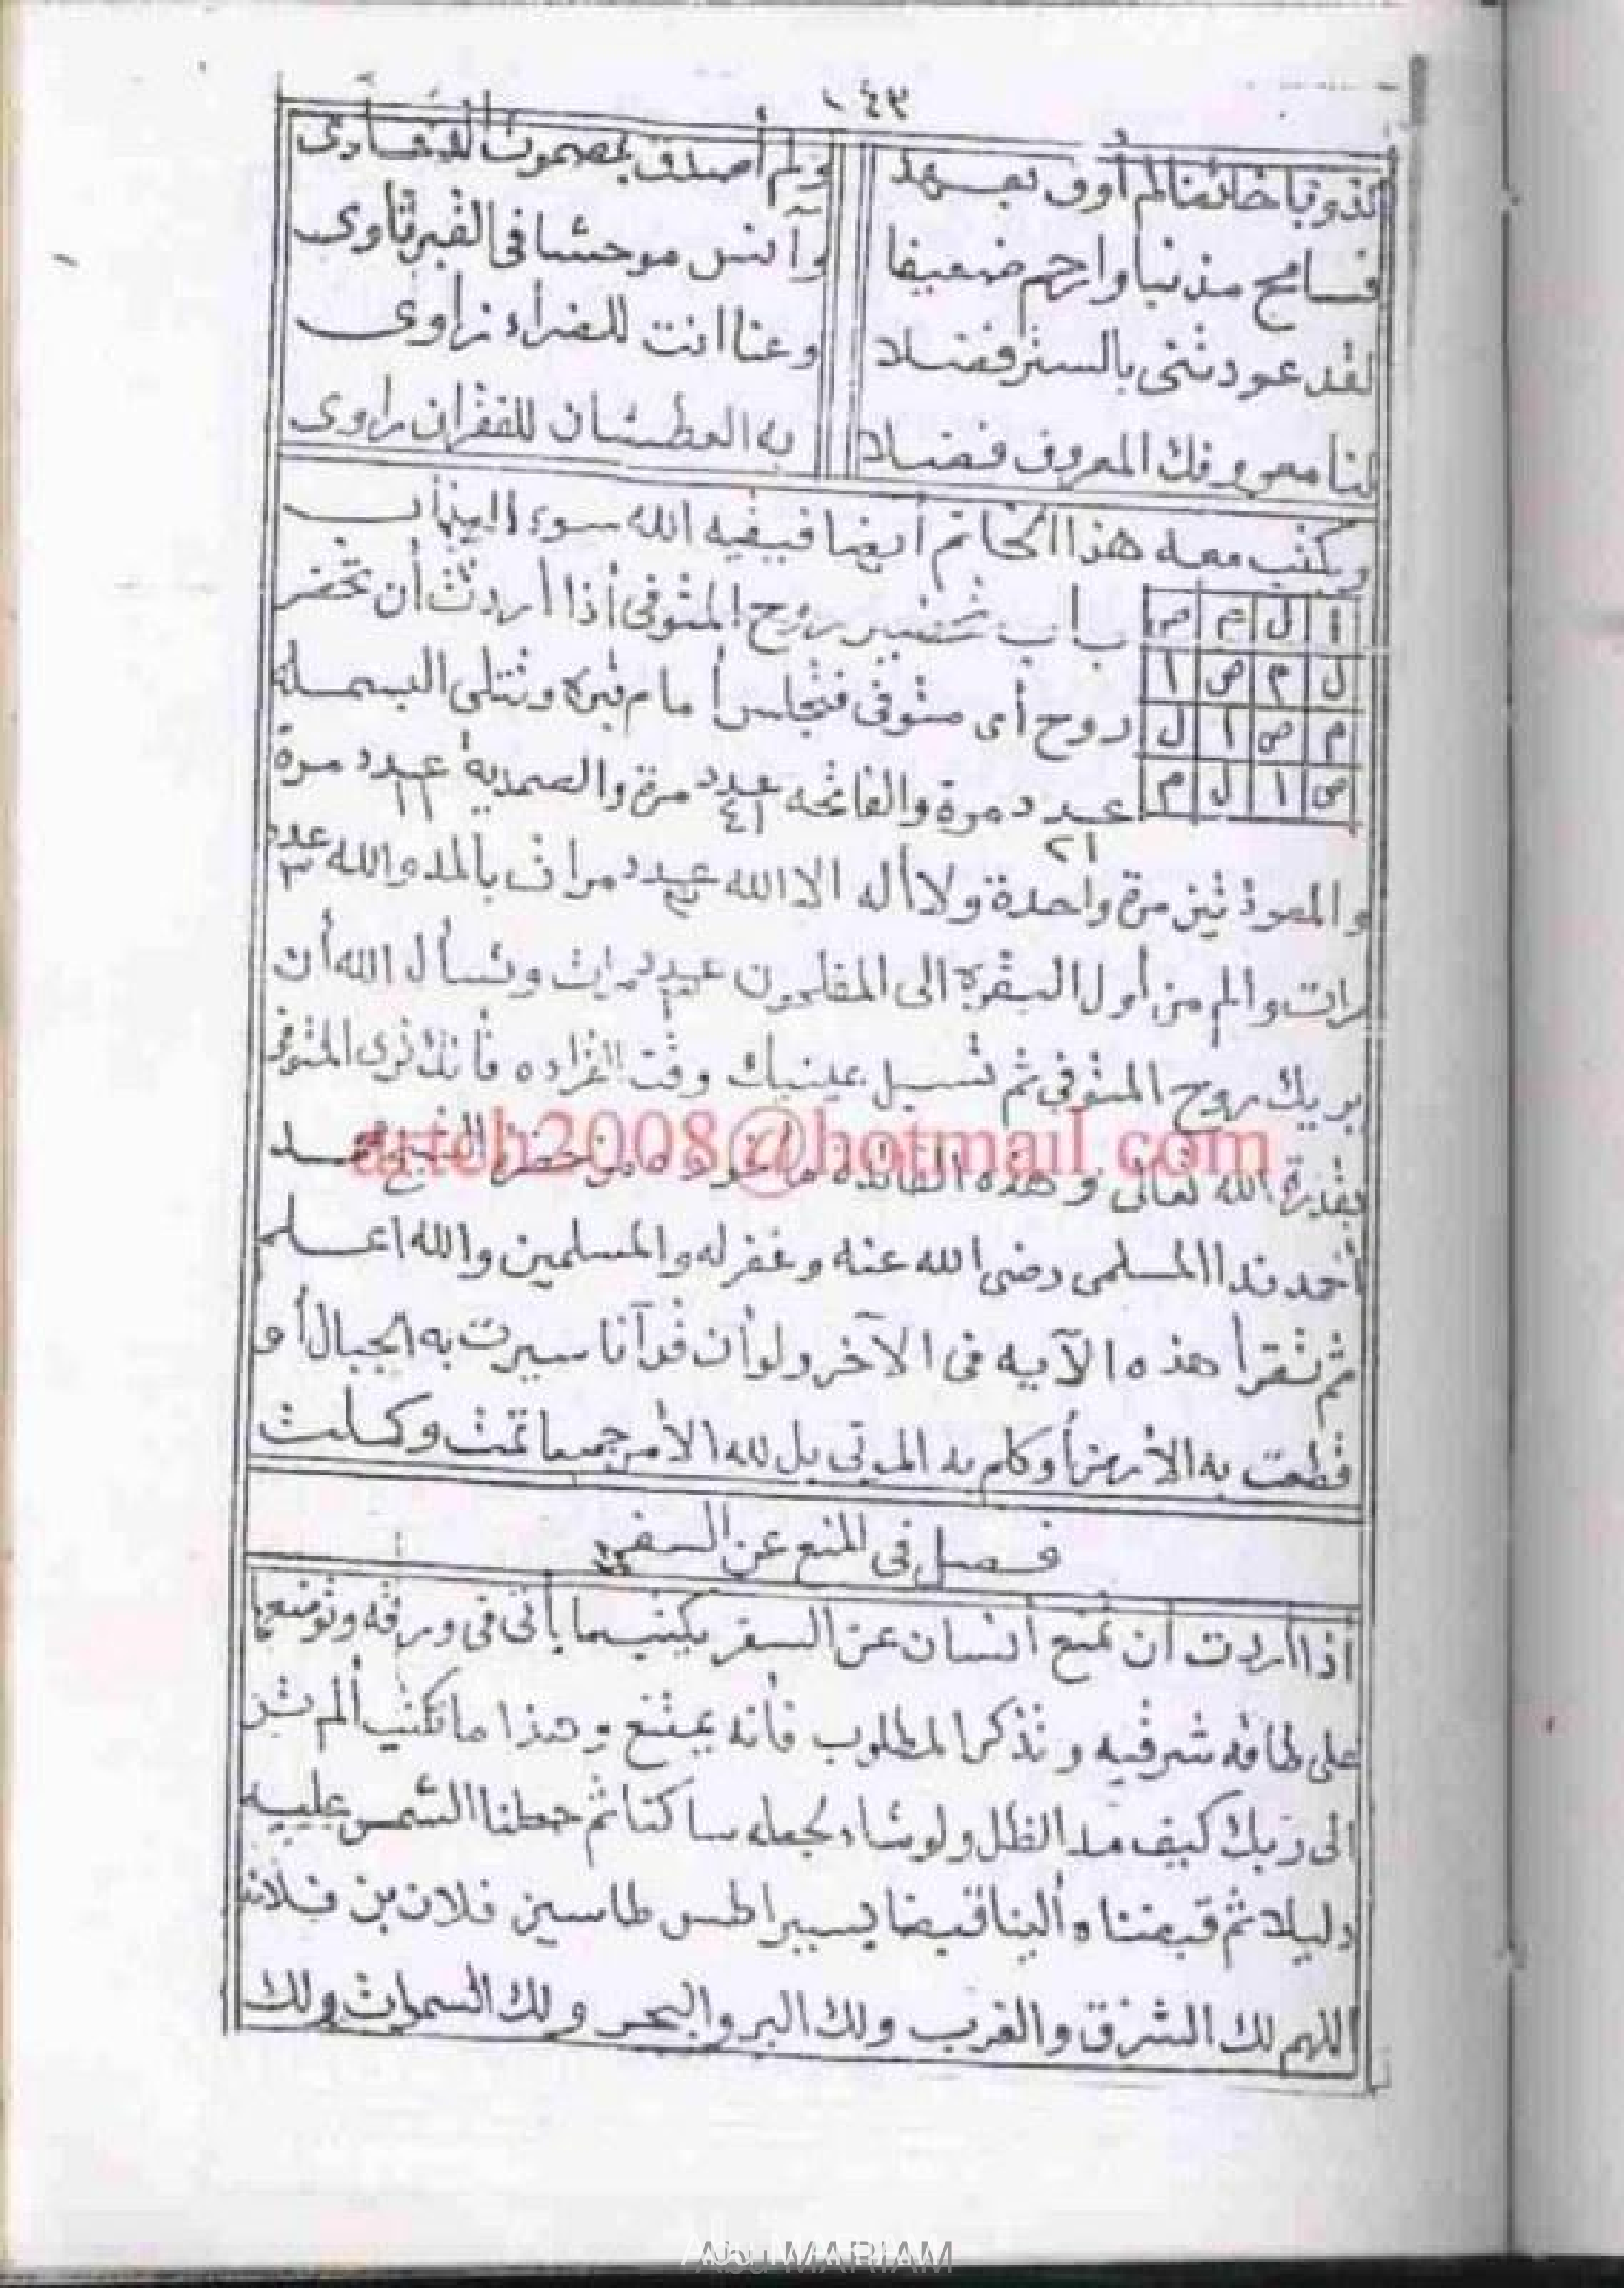 ١٤٣
لم أوف بعهد
ولم أصدق
فسامح مذنبا وارحم ضعيفا
وآنس موحشا فى القبر ثاوى
لقد عودتنى بالستر فضلا
وعنا انت للضراء زاوى
لنا معروفك المعروف فضلا
به العطشان للففران راوى
ويكتب معه هذا الخاتم أيضا فيقيه الله سوء
ا ل م ص
باب تحضير روح المتوفى أذا أردت أن تحضر
ل م ص ا
روح أى متوفى فتجلس أمام قبره وتتلى البسملة
م ص ا ل
عدد ٢١ مرة والفاتحه عدد ٤١ مرة والصمديه عدد ١١ مرة
ص ا ل م
والمعوذتين مرة واحدة ولا أله الا الله عدد مرات بالمد والله عدد ٣
رات والم من أول البقرة الى المفلحون عدد مرات وتسأل الله أن
يريك روح المتوفى ثم تسبل عينيك وقت فأنك ترى المتوفى
بقدرة الله تعالى وهذه الفائده
arteb2008@hotmail.com
أحمد ندا المسلمى رضى الله عنه وغفر له والمسلمين والله اعلم
ثم تقرأ هذه الآيه فى الآخر ولو أن قرآنا سيرت به الجبال أو
قطعت به الأرض أو كلم به الموتى بل لله الأمر جميعا تمت وكملت
فصل فى المنع عن السفر
اذا اردت ان تمنع أنسان عن السفر يكتب ما يأتى فى ورقه وتوضعها
على طاقه شرقيه وتذكر المطلوب فأنه يمتنع وهذا ما تكتب ألم تر
الى ربك كيف مد الظل ولو شاء لجعله ساكنا ثم جعلنا الشمس عليه
دليلا ثم قبضناه ألينا قبضا يسيرا طس طاسين فلان بن فلانه
اللهم لك الشرق والغرب ولك البر والبحر ولك السموات ولك
Abu MARIAM